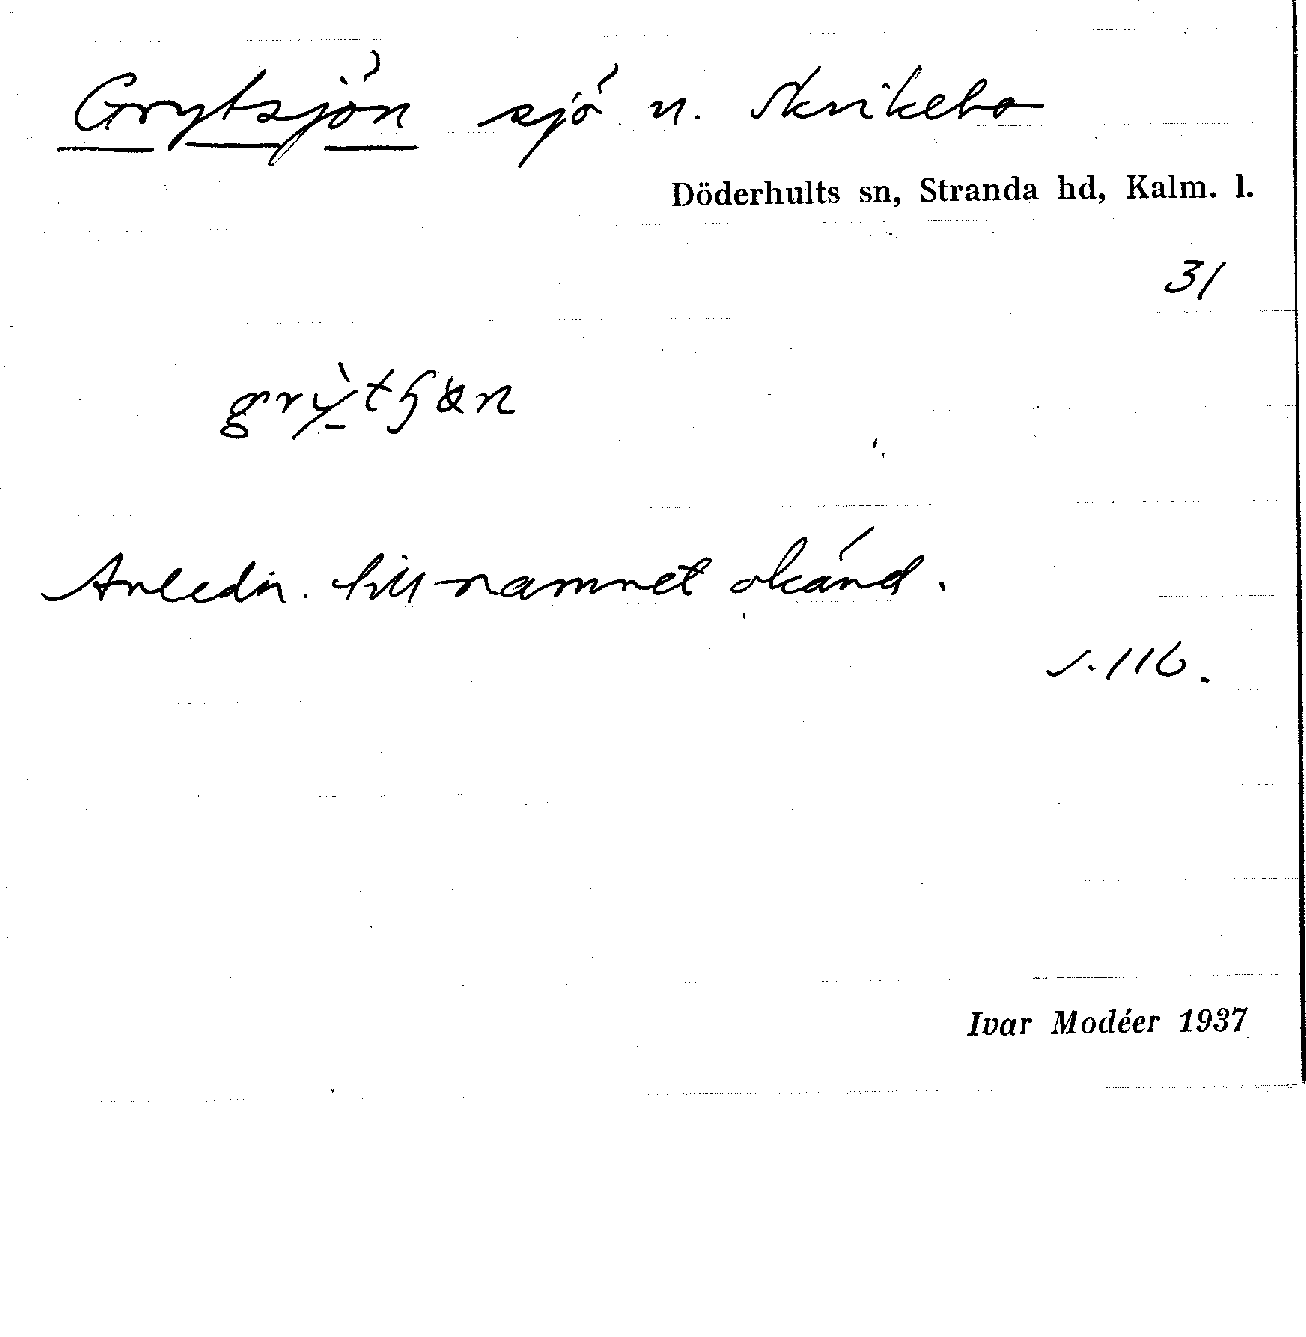 Grytsjön sjö n. Skrikebo
Döderhults sn, Stranda hd, Kalm. l.
31
Anledn. till namnet okänd.
s. 116.
Ivar Modéer 1937